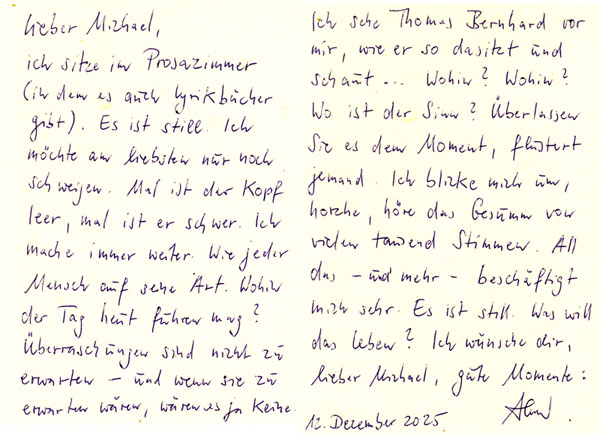 lieber Michael,
ich sitze im Prosazimmer
(in dem es auch Lyrikbücher
gibt). Es ist still. Ich
möchte am liebsten nur noch
schweigen. Mal ist der Kopf
leer, mal ist er schwer. Ich
mache immer weiter. Wie jeder
Mensch auf seine Art. Wohin
der Tag heut führen mag?
Überraschungen sind nicht zu
erwarten – und wenn sie zu
erwarten wären, wären es ja keine.
Ich sehe Thomas Bernhard vor
mir, wie er so dasitzt und
schaut ... Wohin? Wohin?
Wo ist der Sinn? Überlassen
Sie es dem Moment, flüstert
jemand. Ich blicke mich um,
horche, höre das Gesumm von
vielen tausend Stimmen. All
das – und mehr – beschäftigt
mich sehr. Es ist still. Was will
das Leben? Ich wünsche dir,
lieber Michael, gute Momente:
12. Dezember 2025